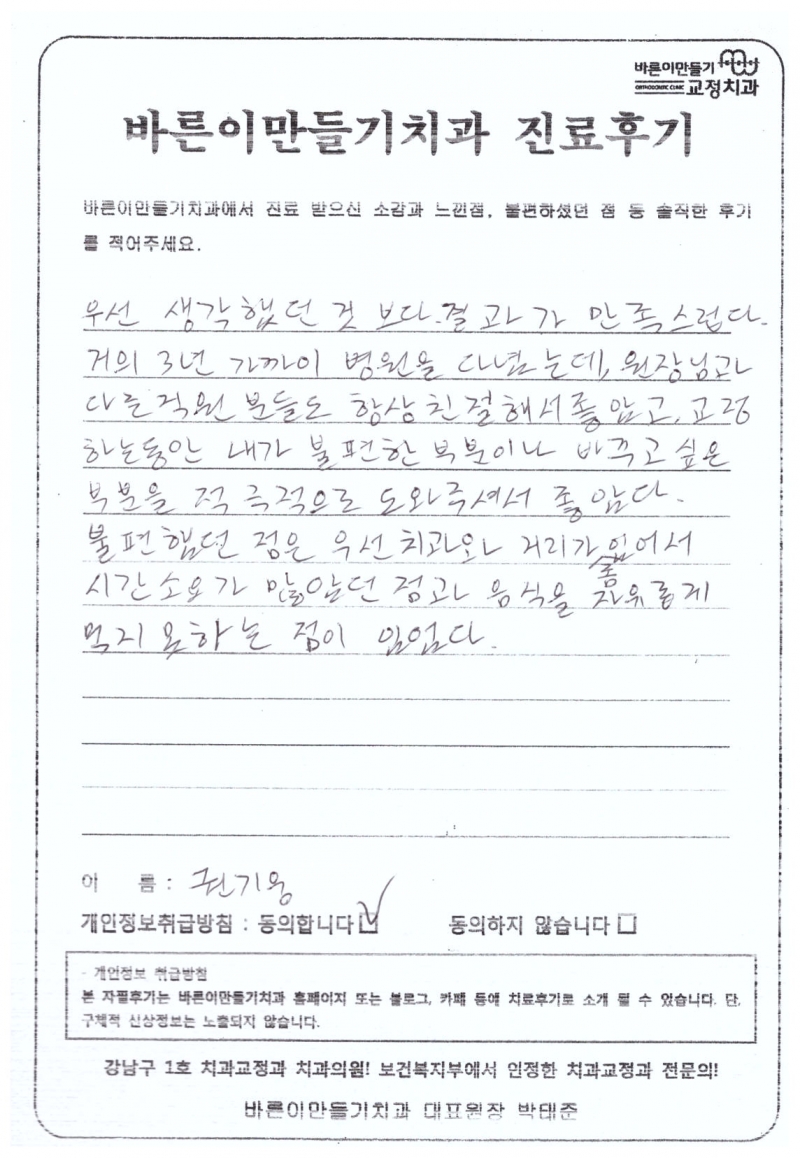 바른이만들기
ORTHODONTIC CLINIC 교정치과
바른이만들기치과 진료후기
바른이만들기치과에서 진료 받으신 소감과 느낀점, 불편하셨던 점 등 솔직한 후기
를 적어주세요.
우선 생각했던 것 보다 결과가 만족스럽다.
거의 3년 가까이 병원을 다녔는데, 원장님과
다른 직원 분들도 항상 친절해서 좋았고, 교정
하는동안 내가 불편한 부분이나 바꾸고 싶은
부분을 적극적으로 도와주셔서 좋았다.
불편했던 점은 우선 치과와 거리가 있어서
시간소요가 많았던 점과 음식을 좀 자유롭게
먹지 못하는 점이 있었다.
이 름 : 권기용
개인정보취급방침 : 동의합니다 동의하지 않습니다
- 개인정보 취급방침
본 자필후기는 바른이만들기치과 홈페이지 또는 블로그, 카페 등에 치료후기로 소개 될 수 있습니다. 단,
구체적 신상정보는 노출되지 않습니다.
강남구 1호 치과교정과 치과의원! 보건복지부에서 인정한 치과교정과 전문의!
바른이만들기치과 대표원장 박태준